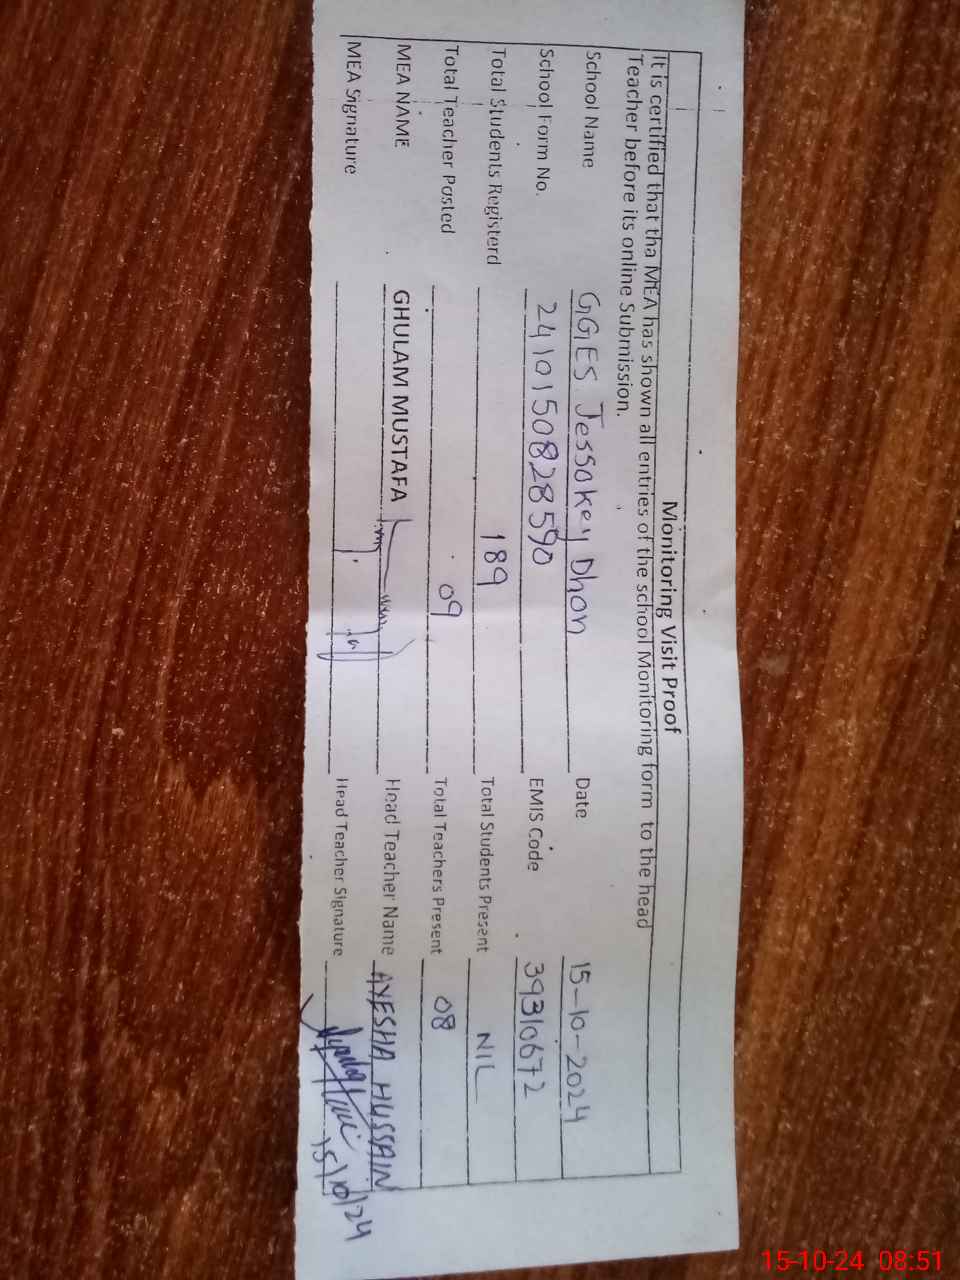 Monitoring Visit Proof
It is certified that tha MEA has shown all entries of the school Monitoring form to the head
Teacher before its online Submission.
School Name GGES Jessokey Dhon Date 15-10-2024
School Form No. 2410150828590 EMIS Code 39310672
Total Students Registerd 189 Total Students Present NIL
Total Teacher Posted 09 Total Teachers Present 08
MEA NAME GHULAM MUSTAFA Head Teacher Name AYESHA HUSSAIN
MEA Signature Head Teacher Signature
15/10/24
15-10-24 08:51